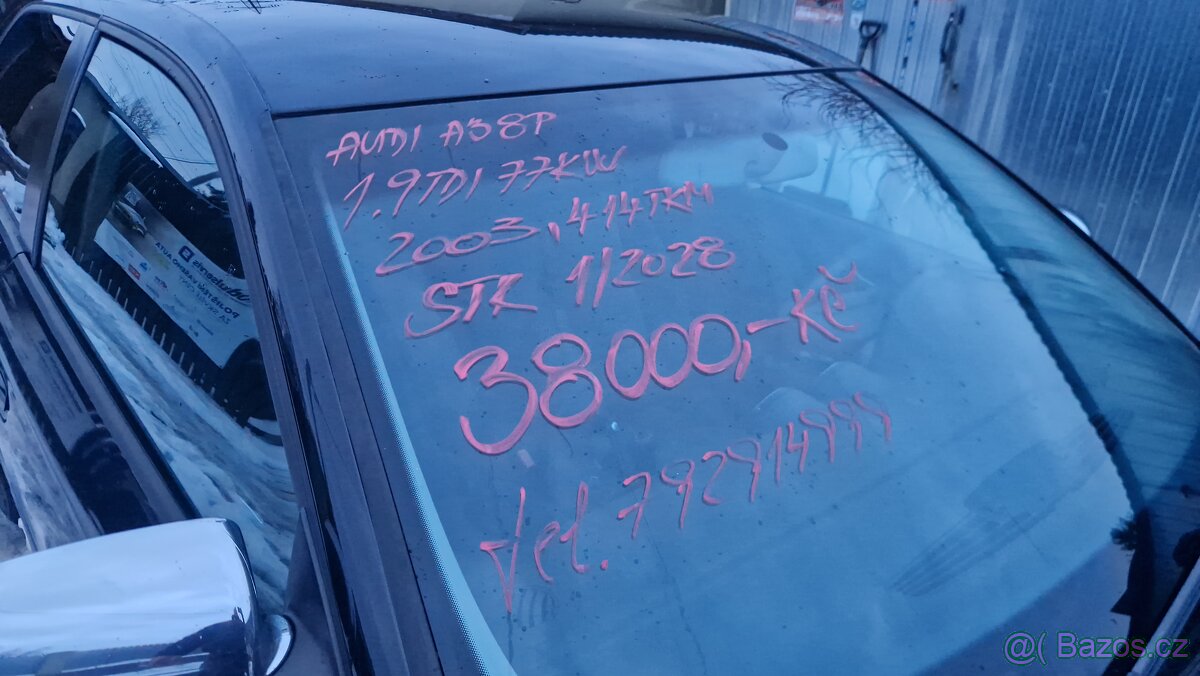 AUDI A3 8P
1.9TDI 77KW
2003, 414TKM
STK 1/2028
38000,-Kč
tel. 792914999
@( Bazos.cz